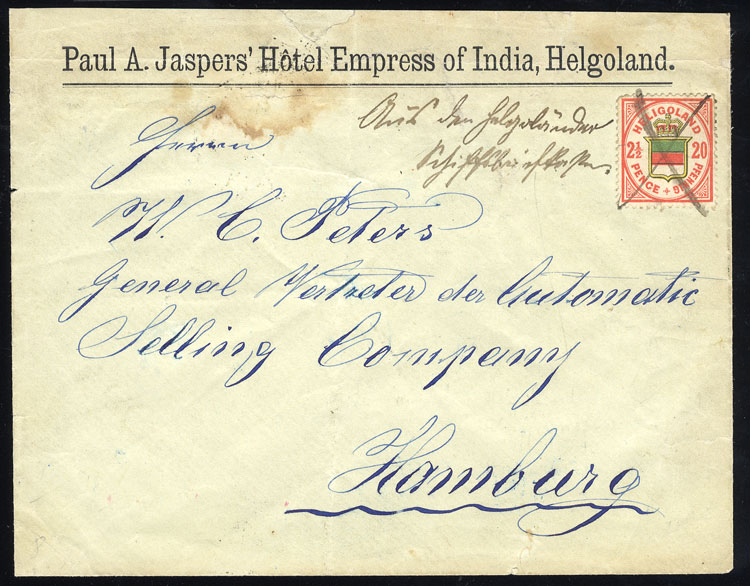 Paul A. Jaspers' Hôtel Empress of India, Helgoland.
Aus den Helgoländer
Schiffsbriefkasten
HELIGOLAND
2½ 20
PENCE PFENNIG
Herrn
W. C. Peters
General Vertreter der Automatic
Selling Company
Hamburg